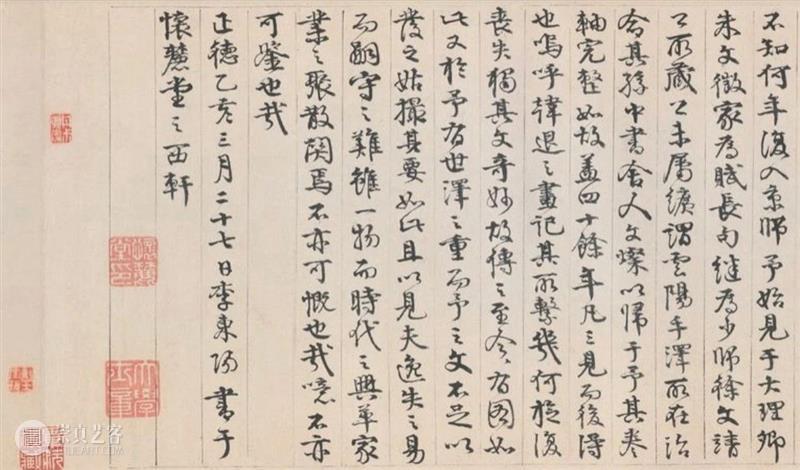 不知何年復入京師予始見于大理卿
朱文徵家為賦長句継為少師徐文靖
公所藏公未屬纊謂雲陽手澤所在治
命其孫中書舍人文燦以歸于予其卷
軸完整如故蓋四十餘年凡三見而後得
也嗚呼韓退之畫記其所繫幾何旋復
喪失獨其文奇妙故傳之至今有圖如
此又於予有世澤之重而予之文不足以
發之姑撮其要如此且以見夫逸失之易
而嗣守之難雖一物而時代之興革家
業之聚散関焉不亦可慨也哉噫不亦
可鑒也哉
正德乙亥三月二十七日李東陽書于
懷麓堂之西軒
崇真艺客